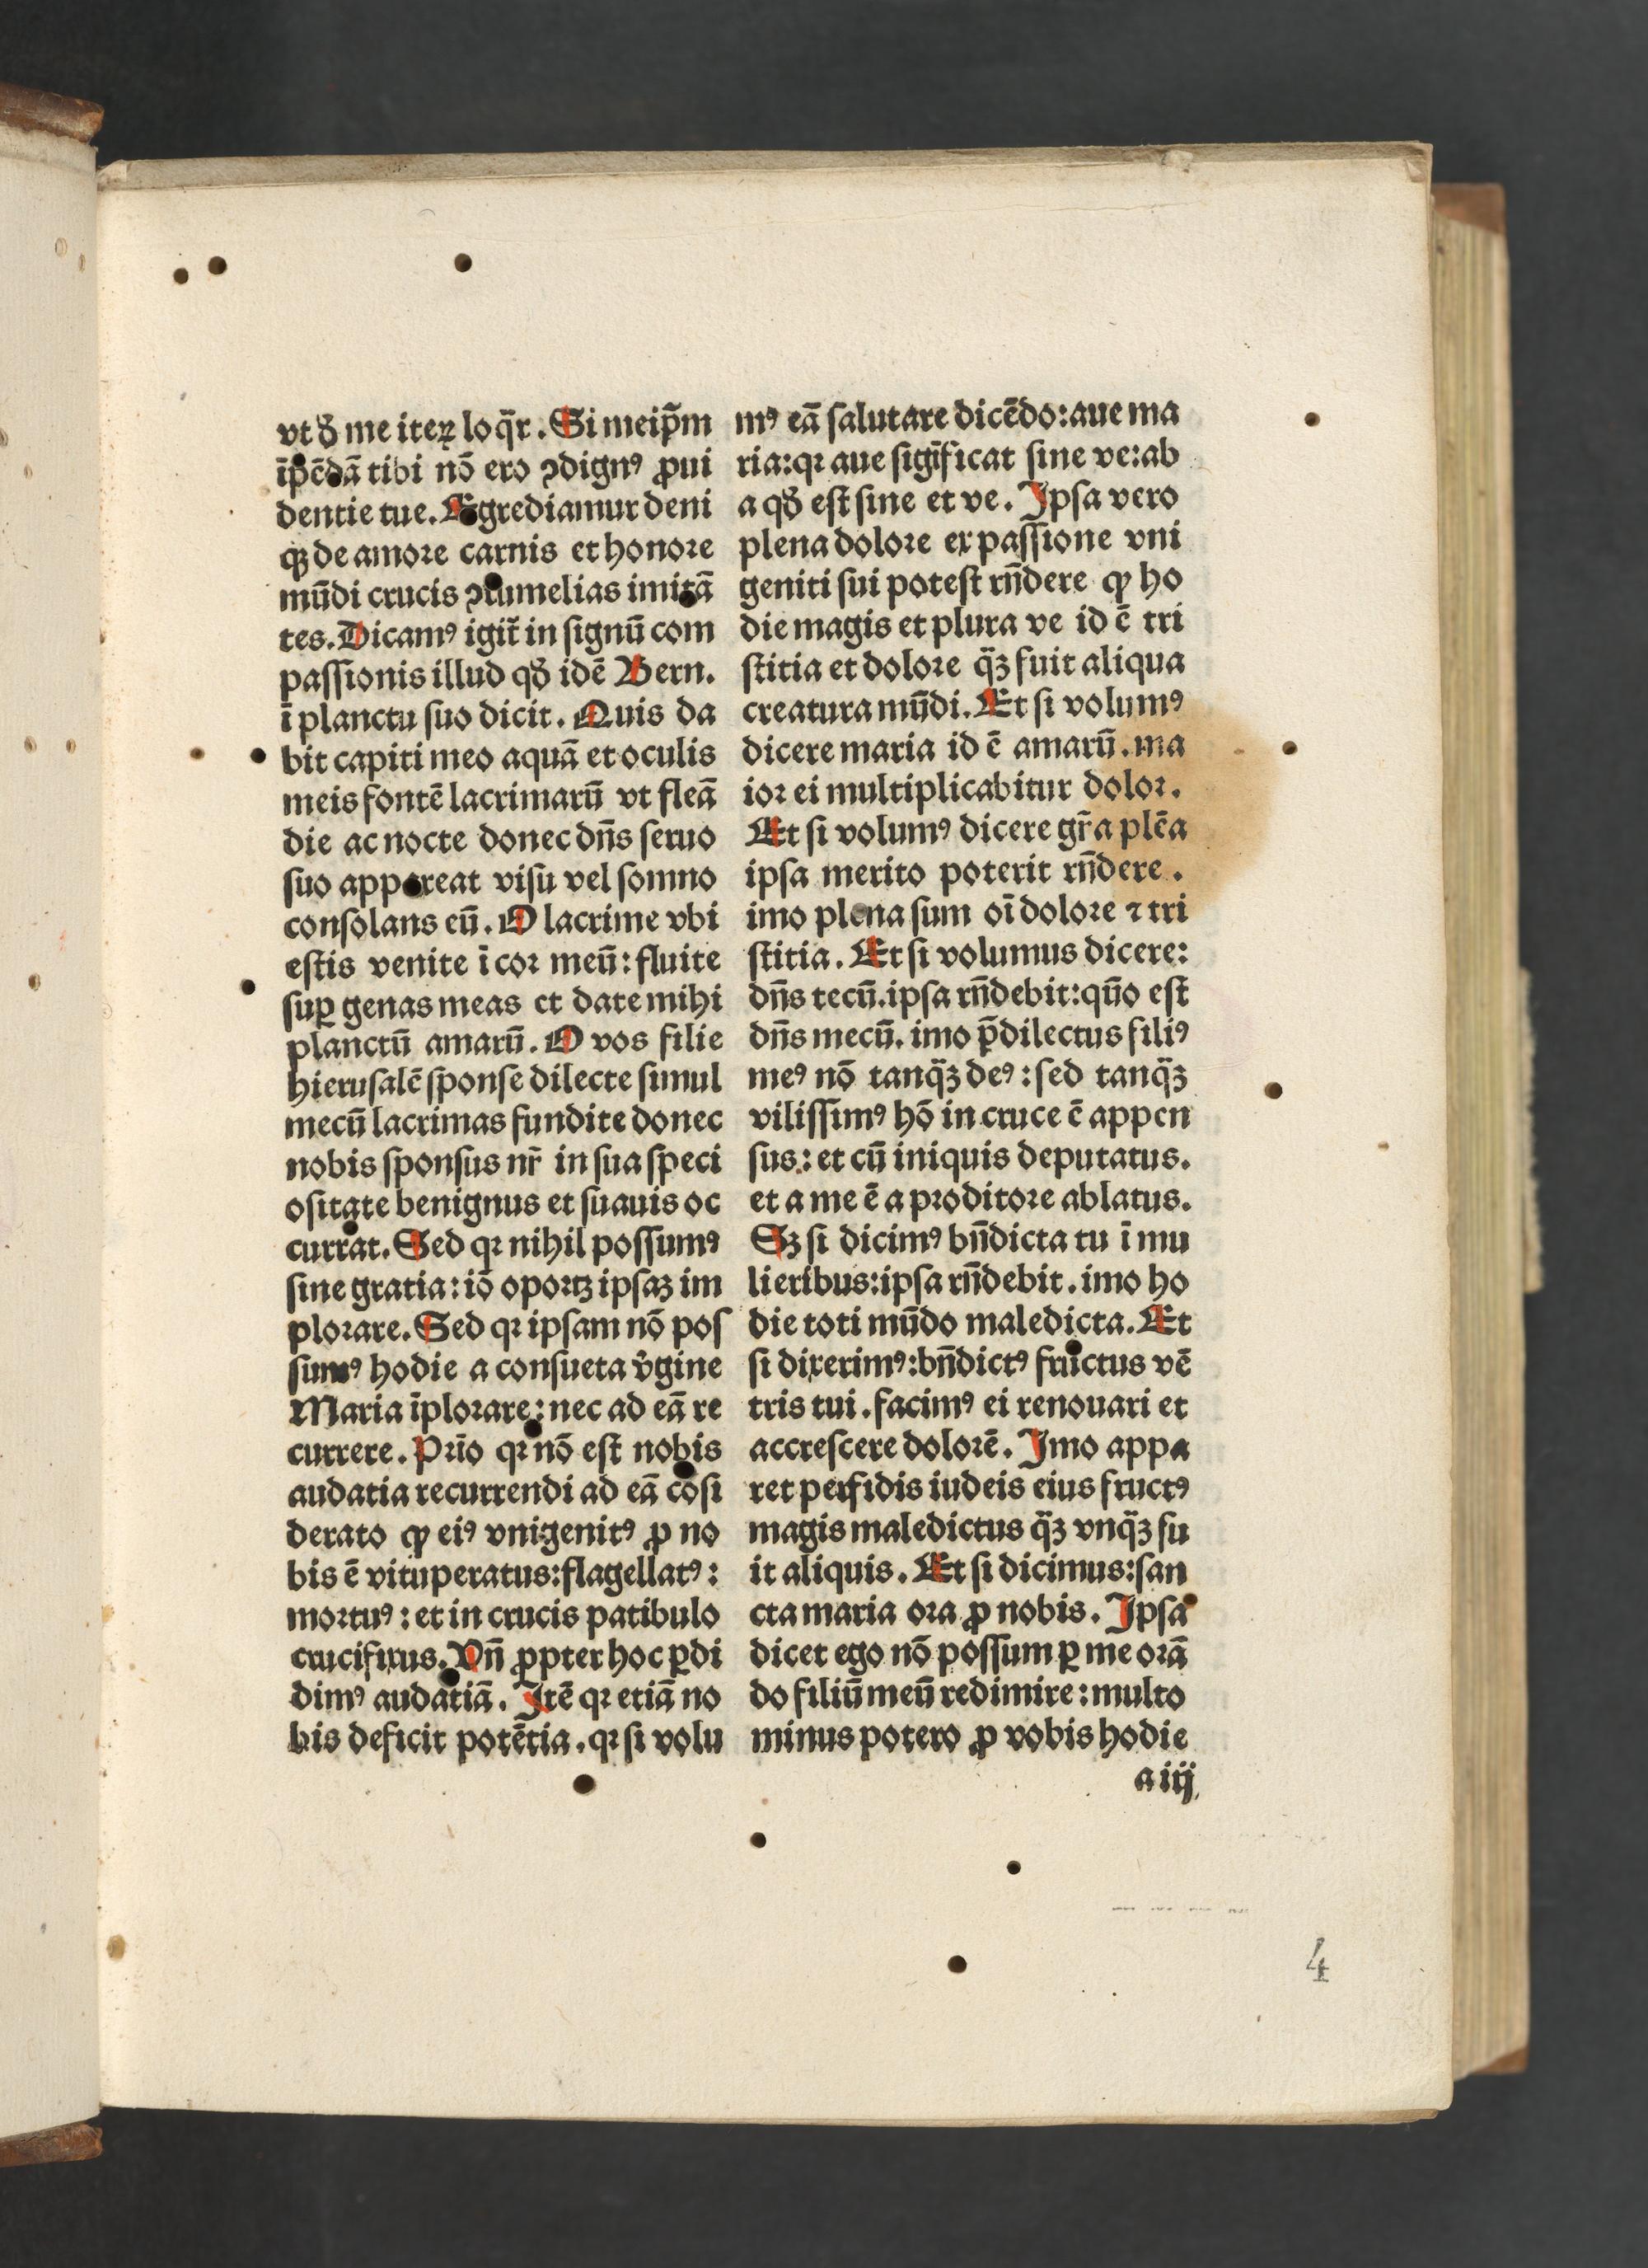 vt ꝺ̄ me iteꝝ loq̄r. Si meip̄m
īpēdā tibi nō ero ꝯdignꝰ ꝓui
dentie tue. Egrediamur deni
qꝫ de amore carnis et honore
mūdi crucis ꝯtumelias imitā
tes. Dicamꝰ igit̄ in signū com
passionis illud qꝺ̄ idē Bern.
ī planctu suo dicit. Quis da
bit capiti meo aquā et oculis
meis fontē lacrimarū vt fleā
die ac nocte donec dn̄s seruo
suo appareat visu vel somno
consolans eū. O lacrime vbi
estis venite ī cor meū: fluite
suꝑ genas meas et date mihi
planctū amarū. O vos filie
hierusalē sponse dilecte simul
mecū lacrimas fundite donec
nobis sponsus nr̄ in sua speci
ositate benignus et suauis oc
currat. Sed qꝛ nihil possumꝰ
sine gratia: iō oportꝫ ipsaꝫ im
plorare. Sed qꝛ ipsam nō pos
sumꝰ hodie a consueta v̾gine
Maria īplorare: nec ad eā re
currere. Prīo qꝛ nō est nobis
audatia recurrendi ad eā cōsi
derato ꝙ eiꝰ vnigenitꝰ ꝓ no
bis ē vituperatus: flagellatꝰ:
mortuꝰ: et in crucis patibulo
crucifixus. Vn̄ ꝓpter hoc ꝑdi
dimꝰ audatiā. Itē qꝛ etiā no
bis deficit potētia. qꝛ si volu
mꝰ eā salutare dicēdo: aue ma
ria: qꝛ aue sigīficat sine ve: ab
a qꝺ̄ est sine et ve. Ipsa vero
plena dolore ex passione vni
geniti sui potest rn̄dere ꝙ ho
die magis et plura ve id ē tri
stitia et dolore q̄ꝫ fuit aliqua
creatura mūdi. Et si volumꝰ
dicere maria id ē amarū. ma
ior ei multiplicabitur dolor.
Et si volumꝰ dicere gr̄a plēa
ipsa merito poterit rn̄dere.
imo plena sum oī dolore ⁊ tri
stitia. Et si volumus dicere:
dn̄s tecū. ipsa rn̄debit: qūo est
dn̄s mecū. imo p̄dilectus filiꝰ
meꝰ nō tanq̄ꝫ deꝰ: sed tanq̄ꝫ
vilissimꝰ hō in cruce ē appen
sus: et cū iniquis deputatus.
et a me ē a proditore ablatus.
Sꝫ si dicimꝰ bn̄dicta tu ī mu
lieribus: ipsa rn̄debit. imo ho
die toti mūdo maledicta. Et
si dixerimꝰ: bn̄dictꝰ fructus vē
tris tui. facimꝰ ei renouari et
accrescere dolorē. Imo appa
ret perfidis iudeis eius fructꝰ
magis maledictus q̄ꝫ vnq̄ꝫ fu
it aliquis. Et si dicimus: san
cta maria ora ꝓ nobis. Ipsa
dicet ego nō possum ꝑ me orā
do filiū meū redimire: multo
minus potero ꝓ vobis hodie
a iij
4